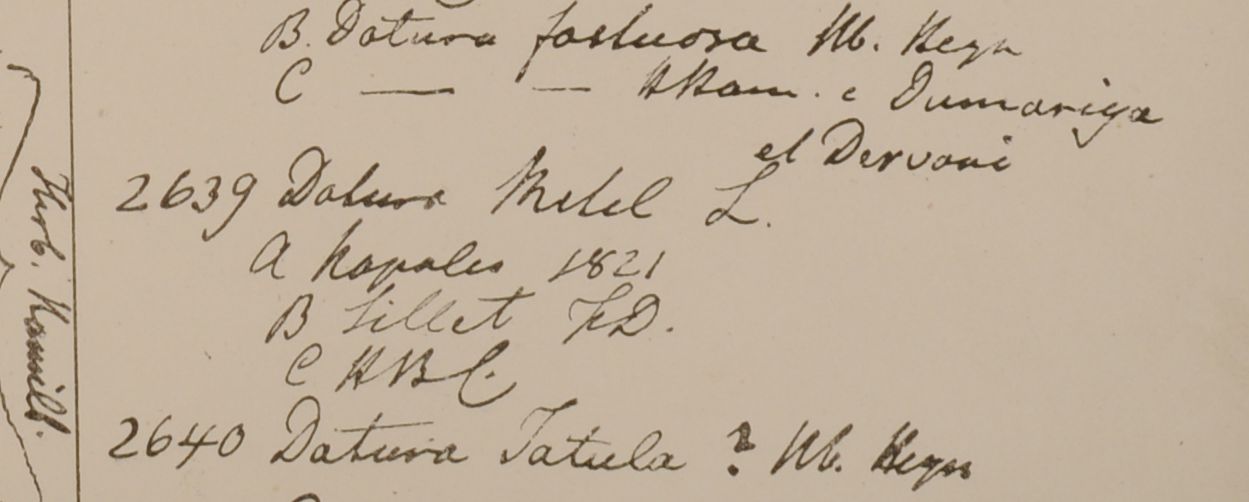 B. Datura fastuosa Hb. Heyn
C — — HHam. e Dumariya
et Dervani
2639 Datura Metel L.
A Napalia 1821
B Sillet FD.
C HBC.
2640 Datura Tatula ? Hb. Heyn
Herb. Hamilt.